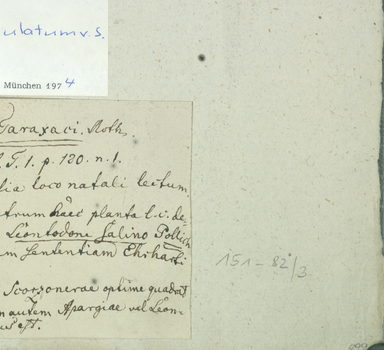 ulatum v. S.
München 1974
Taraxaci. Roth.
T. 1. p. 120. n. 1.
lia loco natali lectum
trum haec planta l. c. de-
Leontodone Salino Pollich
m sententiam Ehrharti
Scorzonerae optime quadrat
n autem Apargiae vel Leon-
us est.
151-82/3